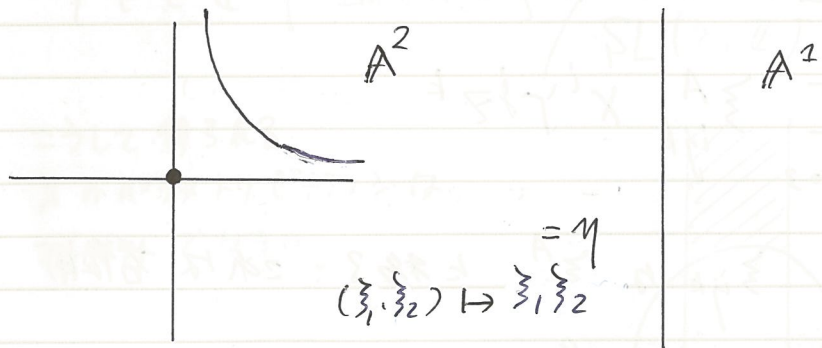 𝔸² 𝔸¹
= η
(ξ₁, ξ₂) ↦ ξ₁ξ₂